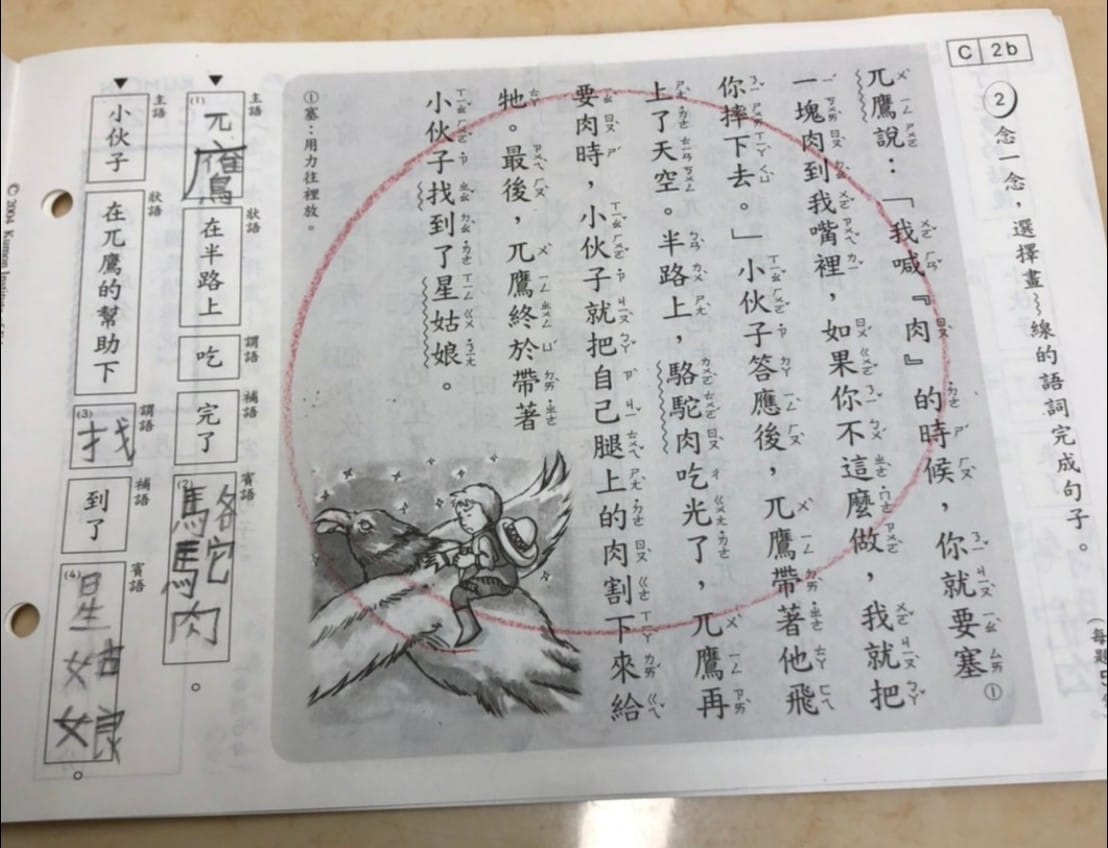 C 2b
② 念一念，選擇畫～線的語詞完成句子。
兀鷹說：「我喊『肉』的時候，你就要塞①
一塊肉到我嘴裡，如果你不這麼做，我就把
你摔下去。」小伙子答應後，兀鷹帶著他飛
上了天空。半路上，駱駝肉吃光了，兀鷹再
要肉時，小伙子就把自己腿上的肉割下來給
牠。最後，兀鷹終於帶著
小伙子找到了星姑娘。
①塞：用力往裡放。
主語 狀語 謂語 補語 賓語
(1) 兀鷹 在半路上 吃 完了 (2) 駱駝肉。
主語 狀語 謂語 補語 賓語
小伙子 在兀鷹的幫助下 (3) 找 到了 (4) 星姑娘。
© 2004 Kumon